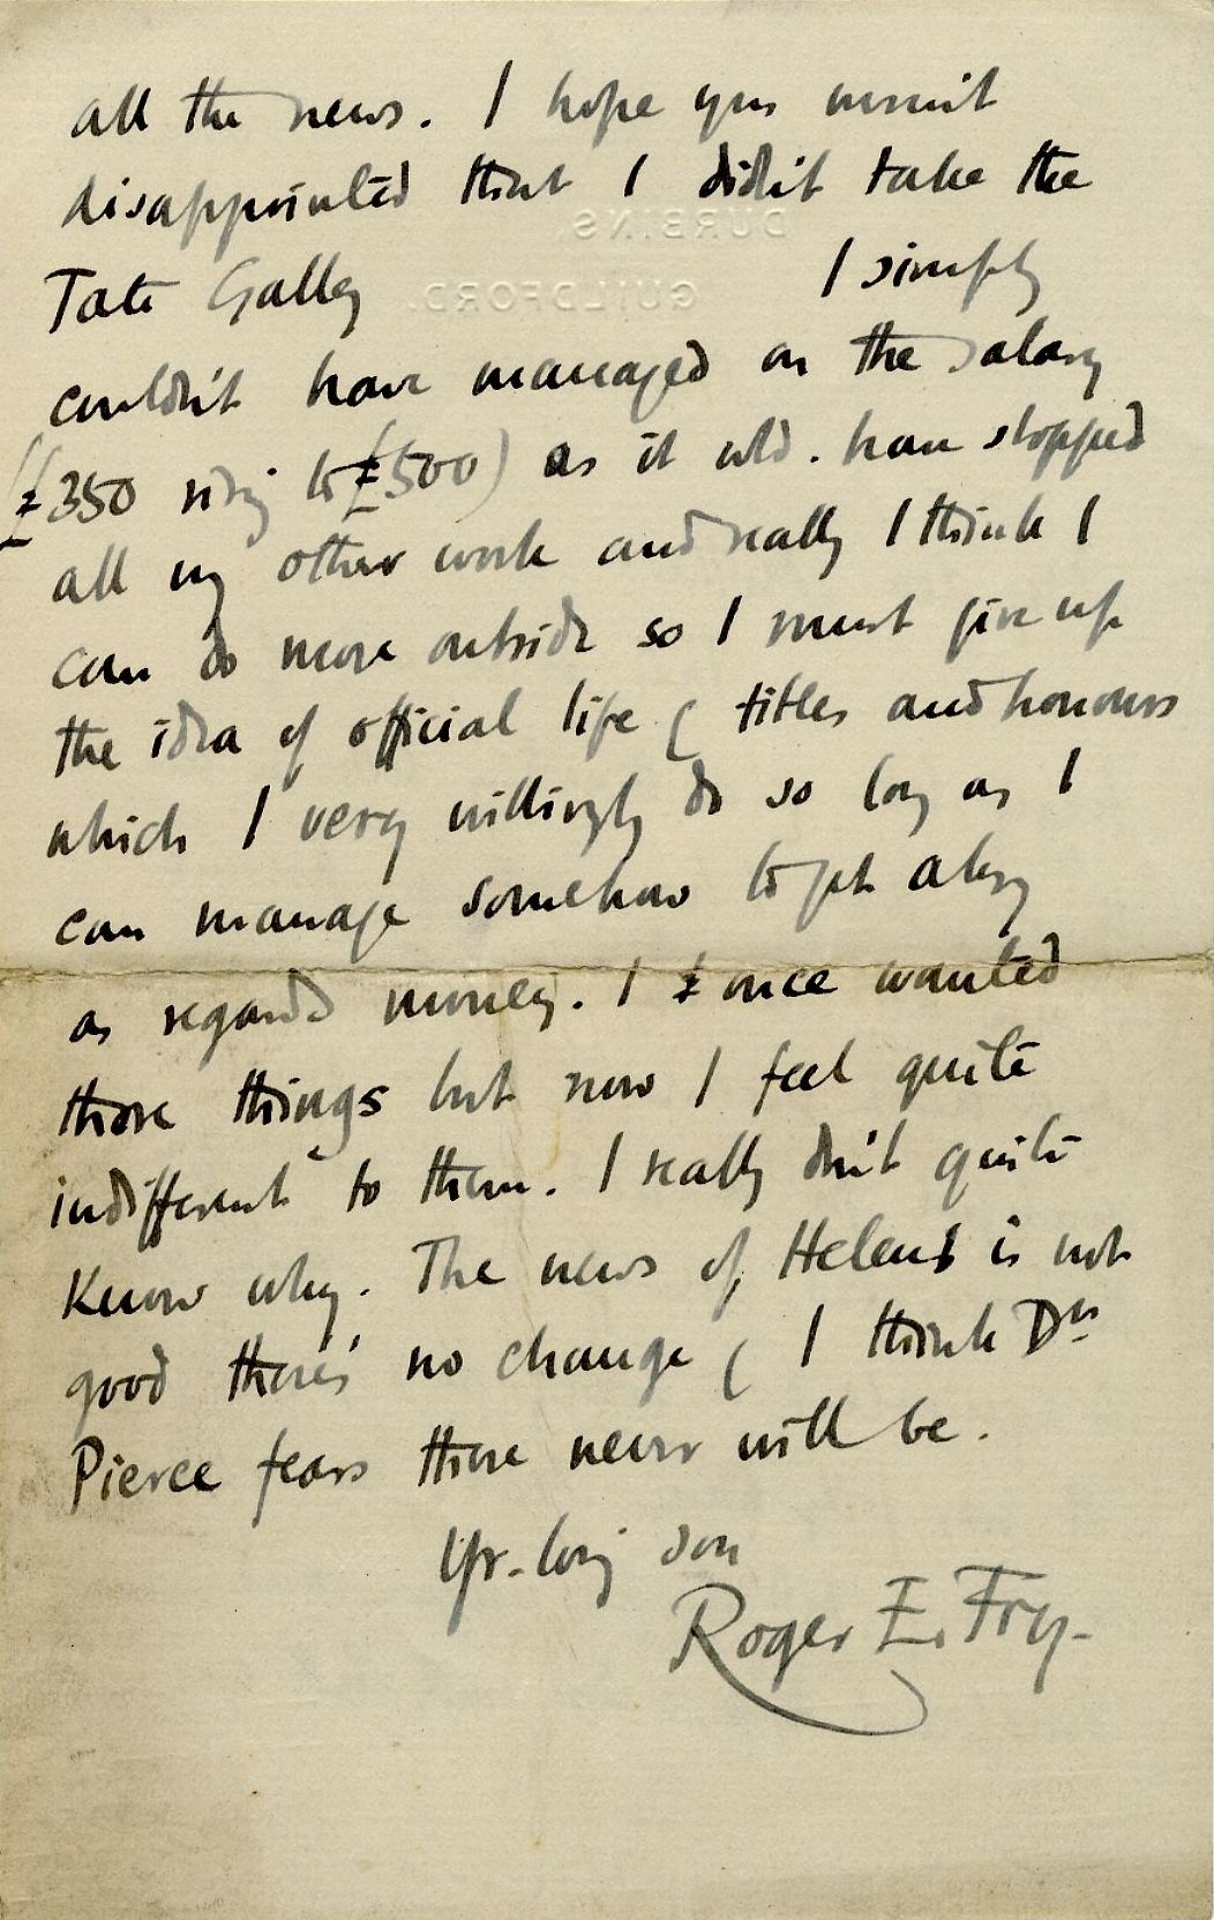 all the news. I hope you weren't
disappointed that I didn't take the
DURBINS,
Tate Gallery I simply
GUILDFORD.
couldn't have managed on the salary
(£350 rising to £500) as it wld. have stopped
all my other work and really I think I
can do more outside so I must give up
the idea of official life ( titles and honours
which I very willingly do so long as I
can manage somehow to get along
as regards money. I once wanted
those things but now I feel quite
indifferent to them. I really don't quite
know why. The news of Helen is not
good there's no change ( I think Dr
Pierce fears there never will be.
Yr. loving son
Roger E. Fry.